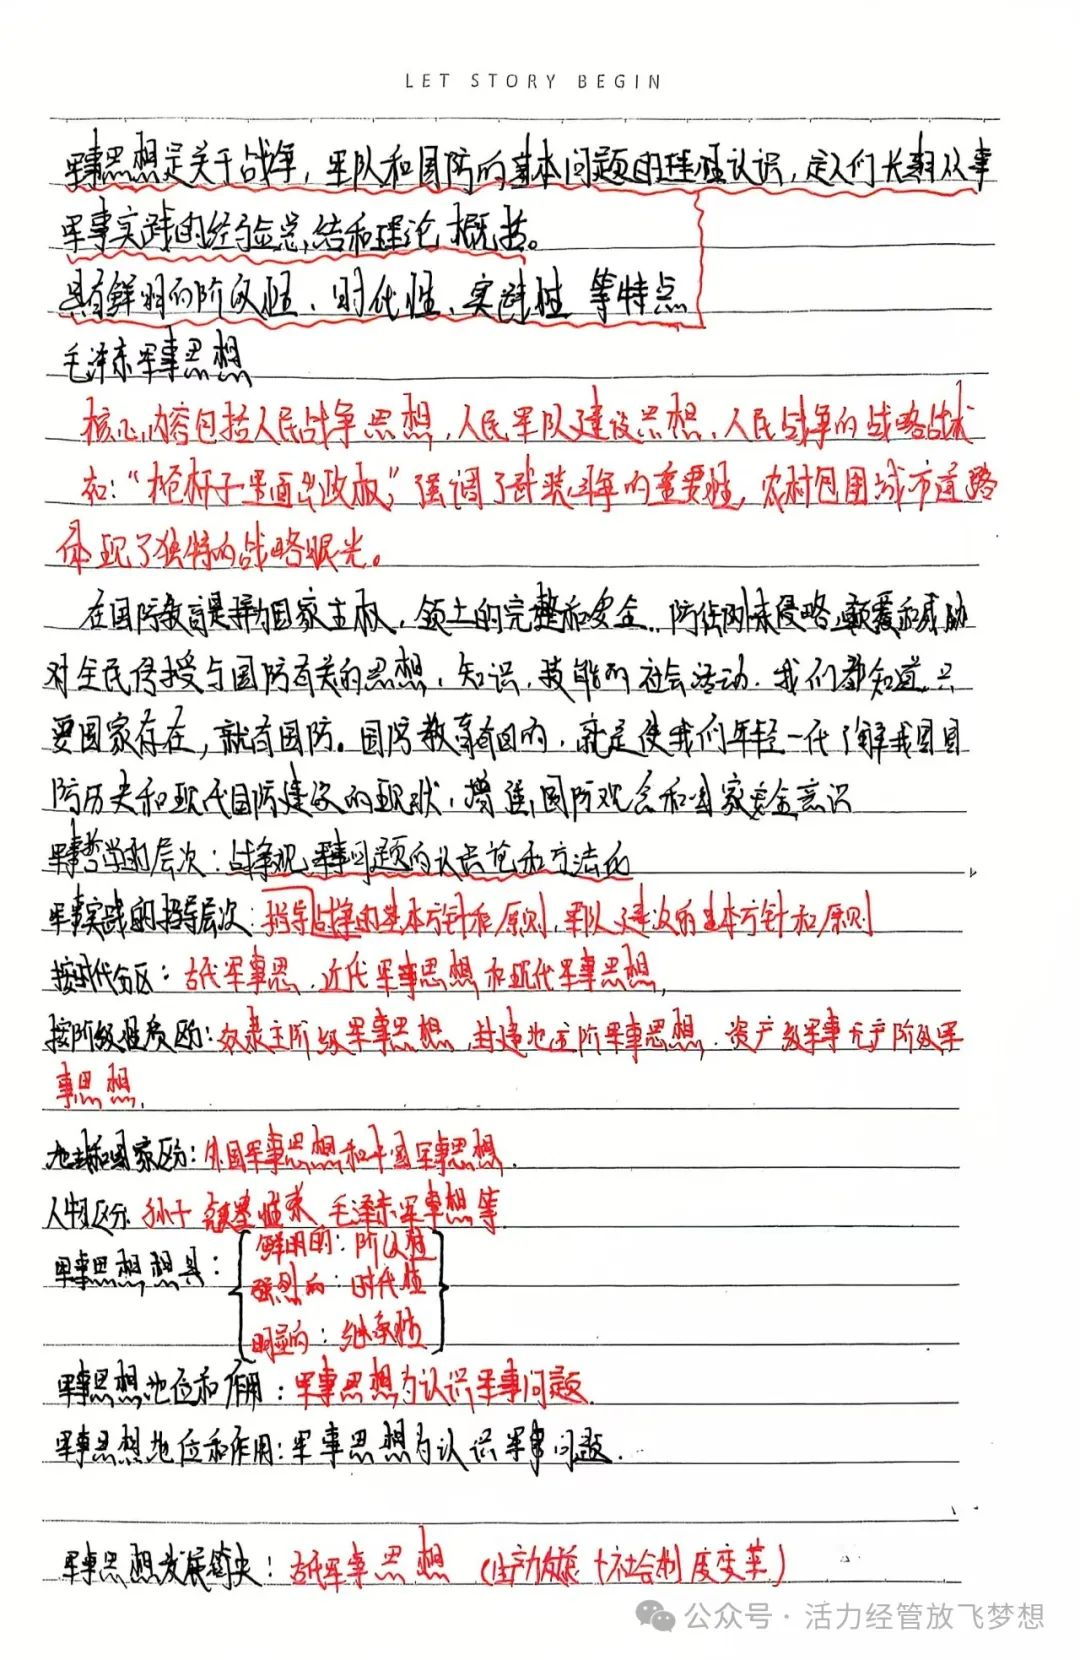 LET STORY BEGIN
军事思想是关于战争，军队和国防的基本问题的理性认识，是人们长期从事
军事实践的经验总结和理论概括。
具有鲜明的阶级性、时代性、实践性 等特点
毛泽东军事思想
核心内容包括人民战争思想，人民军队建设思想、人民战争的战略战术
如：“枪杆子里面出政权”，强调了武装斗争的重要性，农村包围城市道路
体现了独特的战略眼光。
在国防教育是捍为国家主权、领土的完整和安全 防 侵略，颠覆和威胁
对全民传授与国防有关的思想，知识，技能的社会活动．我们都知道，只
要国家存在，就有国防。国防教育有目的，就是使我们年轻一代了解我国国
防历史和现代国防建设的现状，增强国防观念和国家安全意识
军事哲学的层次：战争观，军事问题的认识论和方法论
军事实践的指导层次：指导战争的基本方针和原则，军队建设的基本方针和原则
按时代分区：古代军事思，近代军事思想和现代军事思想，
按阶级性质区的：奴隶主阶级军事思想，封建地主阶军事思想，资产级军事无产阶级军
事思想．
地域和国家区分：外国军事思想和中国军事思想．
人物区分：孙子 毛泽东军事想等
军事思想，想具：
鲜明的：阶级性
强烈的：时代性
明显的：继承性
军事思想地位和作用：军事思想为认识军事问题．
军事思想地位和作用：军事思想为认识军事问题．
军事思想发展简史：古代军事思想（生产力发展十社会制度变革）
公众号·活力经管放飞梦想